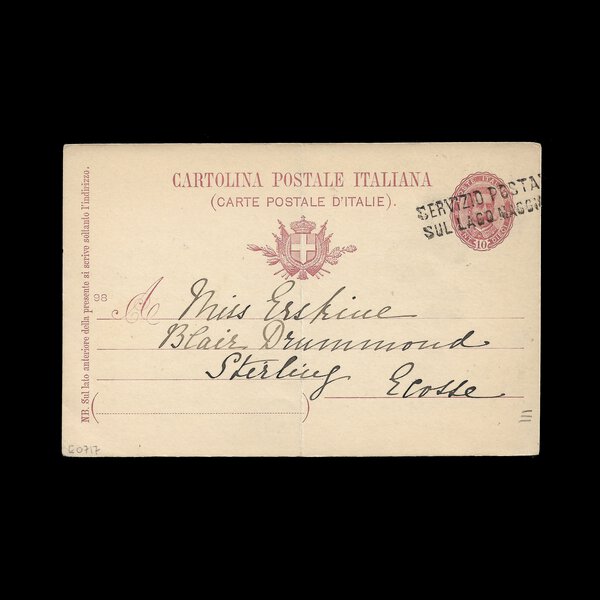 CARTOLINA POSTALE ITALIANA
(CARTE POSTALE D'ITALIE).
SERVIZIO POSTA
SUL LAGO MAGGI
10
98
A Miss Erskine
Blair Drummond
Sterling Ecosse
NB. Sul lato anteriore della presente si scrive soltanto l'indirizzo.
G0717